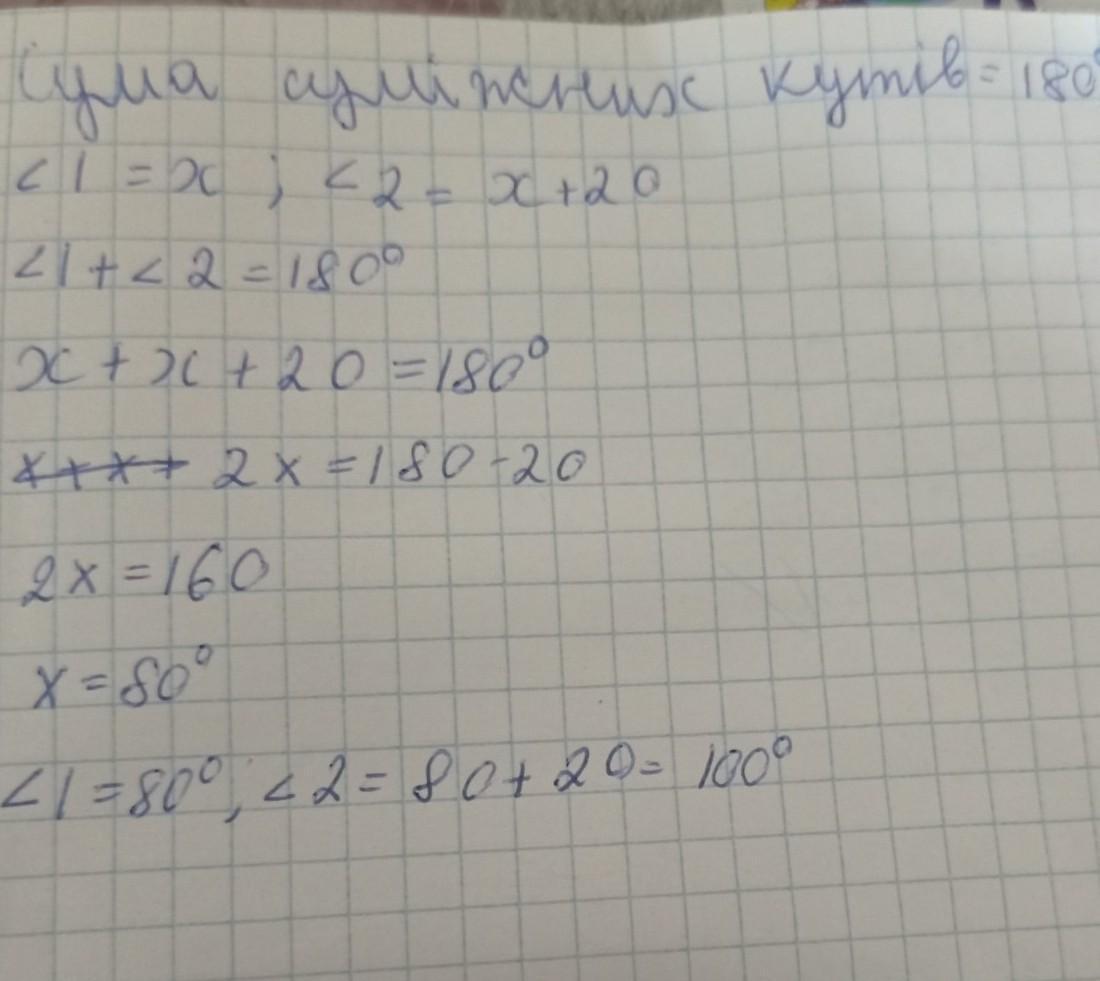 Сума суміжних кутів = 180°
<1 = x ; <2 = x+20
<1+<2 =180°
x + x + 20 =180°
x + x + 2x =180-20
2x =160
x =80°
<1 =80°, <2 = 80+20= 100°